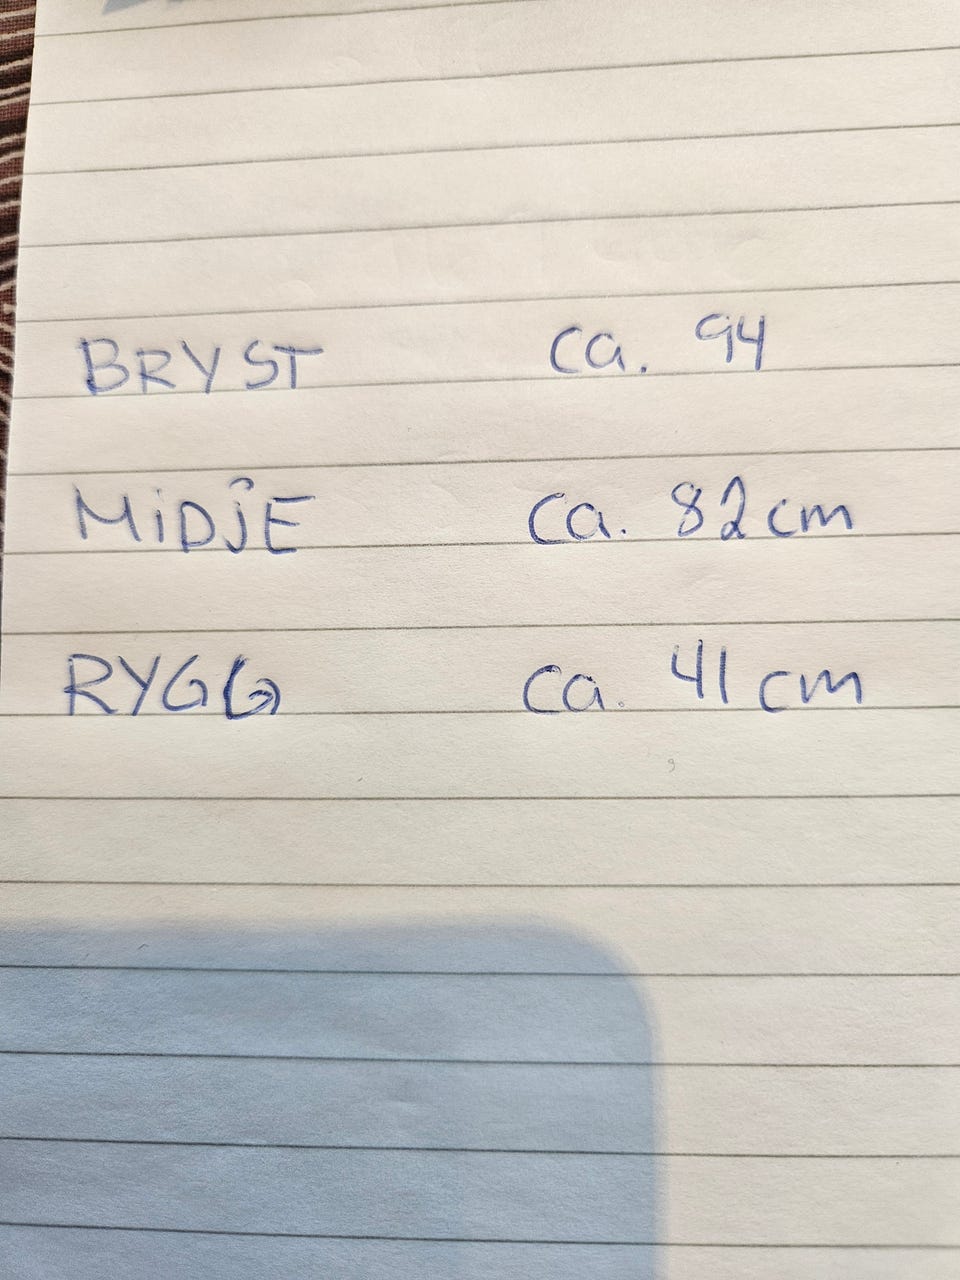 BRYST ca. 94
MiDJE ca. 82 cm
RYGG ca. 41 cm